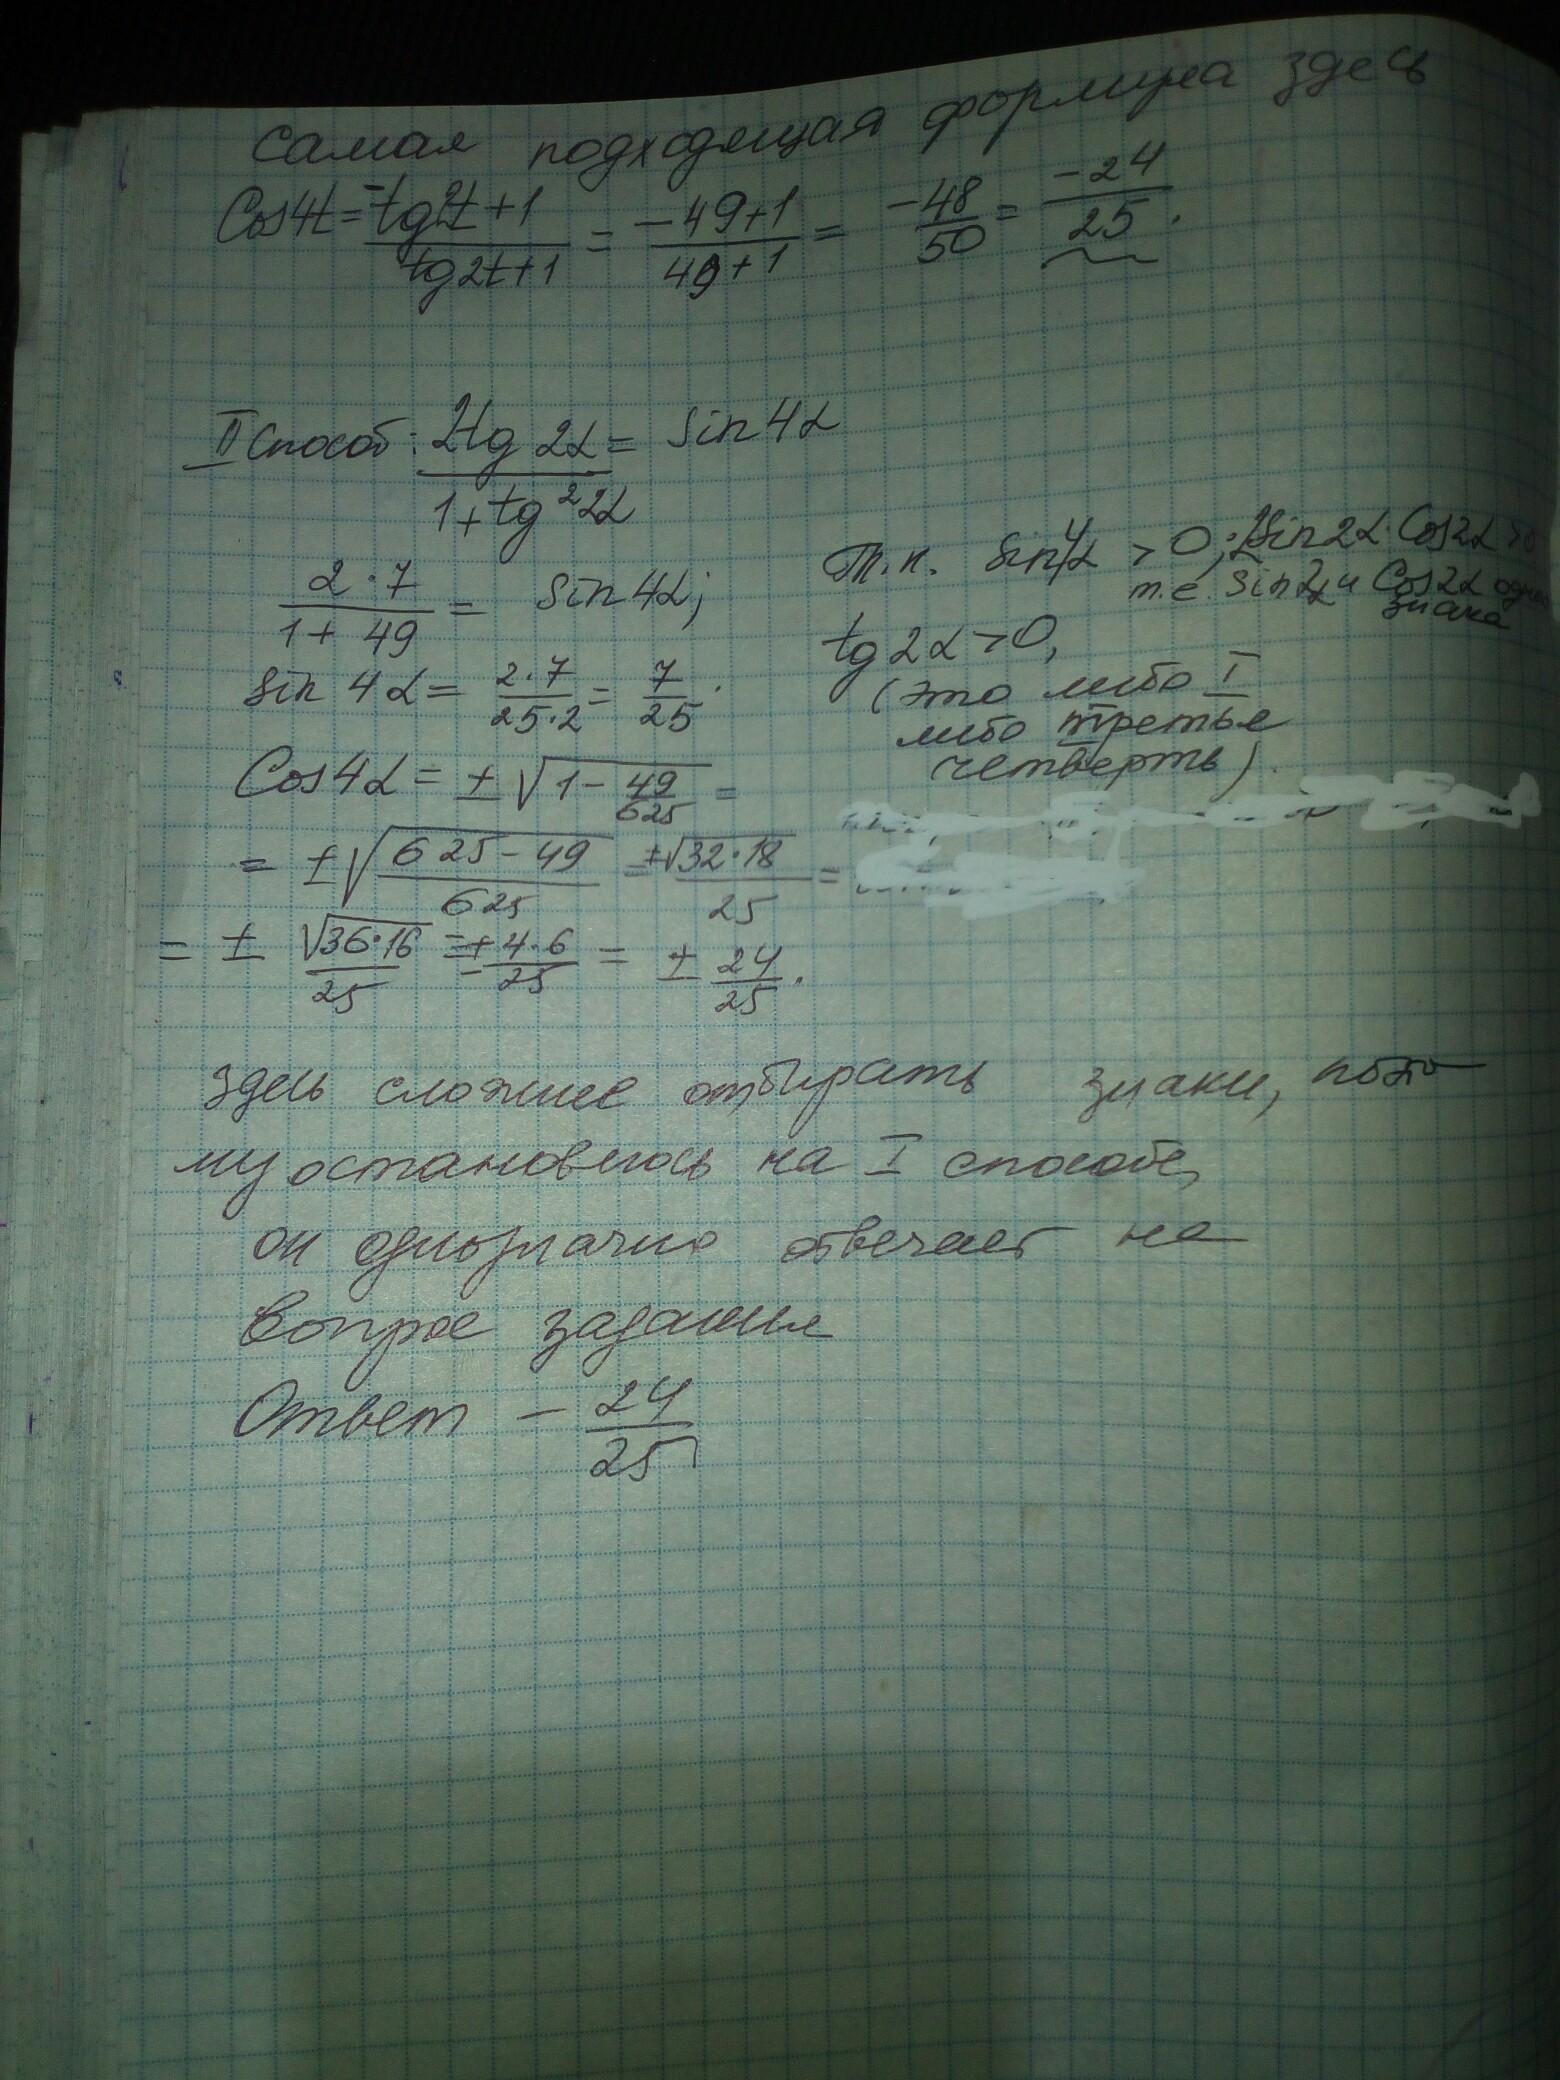 самая подходящая формула здесь
Cos4t = -tg²2t+1 / tg2t+1 = -49+1 / 49+1 = -48/50 = -24/25.
II способ: 2tg2α / 1+tg²2α = sin4α
2·7 / 1+49 = sin4α;
sin4α = 2·7 / 25·2 = 7/25.
Cos4α = ±√1-49/625 =
= ±√625-49/625 = ±√32·18 / 25 =
= ±√36·16 / 25 = ±4·6 / 25 = ±24/25.
т.к. sin4α > 0, 2sin2α·Cos2α > 0
т.е. sin2α и Cos2α
знака
tg2α > 0,
(это либо I
либо третья
четверть).
здесь сложнее отбирать знаки, поэто
му остановлюсь на I способе,
он однозначно отвечает на
вопрос задания
Ответ -24/25